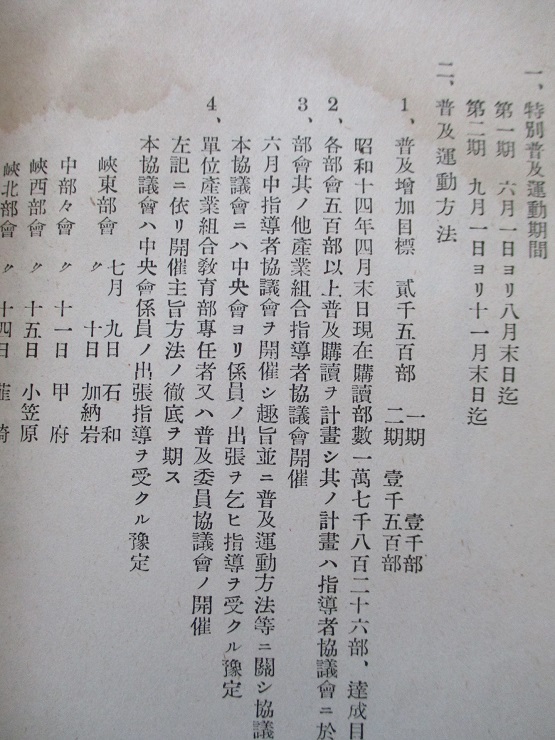 一、特別普及運動期間
第一期　六月一日ヨリ八月末日迄
第二期　九月一日ヨリ十一月末日迄
二、普及運動方法
1、普及增加目標　貳千五百部　一期　壹千部
二期　壹千五百部
昭和十四年四月末日現在購讀部數一萬七千八百二十六部、達成目
2、各部會五百部以上普及購讀ヲ計畫シ其ノ計畫ハ指導者協議會ニ於
3、部會其ノ他產業組合指導者協議會開催
六月中指導者協議會ヲ開催シ趣旨並ニ普及運動方法等ニ關シ協議
本協議會ニハ中央會ヨリ係員ノ出張ヲ乞ヒ指導ヲ受クル豫定
4、單位產業組合敎育部專任者又ハ普及委員協議會ノ開催
左記ニ依リ開催主旨方法ノ徹底ヲ期ス
本協議會ハ中央會係員ノ出張指導ヲ受クル豫定
峽東部會　七月　九日　石和
〃　十日　加納岩
中部々會　〃　十一日　甲府
峽西部會　〃　十五日　小笠原
峽北部會　〃　十四日　韮崎